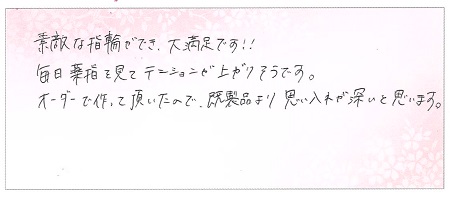 素敵な指輪ができ、大満足です!!
毎日薬指を見てテンションが上がりそうです。
オーダーで作って頂いたので、既製品より思い入れが深いと思います。